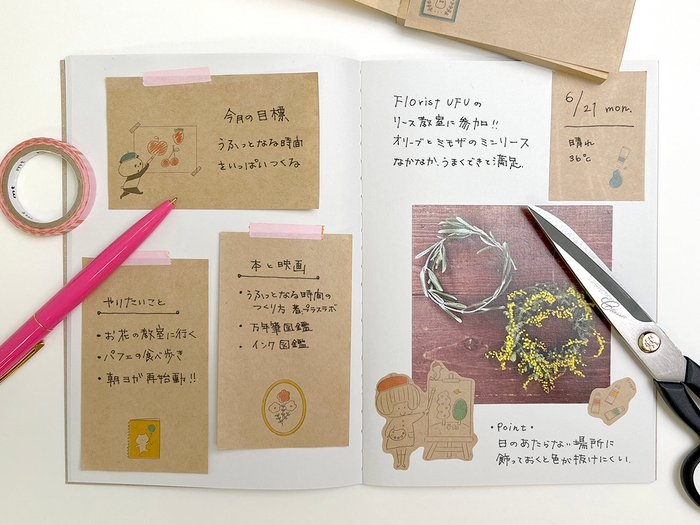 今月の目標
うふっとなる時間
をいっぱいつくる
やりたいこと
・お花の教室に行く
・パフェの食べ歩き
・朝ヨガ再始動!!
本と映画
・うふっとなる時間の
つくり方 著:プラスラボ
・万年筆図鑑
・インク図鑑
Florist UFUの
リース教室に参加!!
オリーブとミモザのミニリース
なかなか、うまくできて満足。
6/21 mon.
晴れ
36℃
・Point・
日のあたらない場所に
飾っておくと色が抜けにくい。
mt